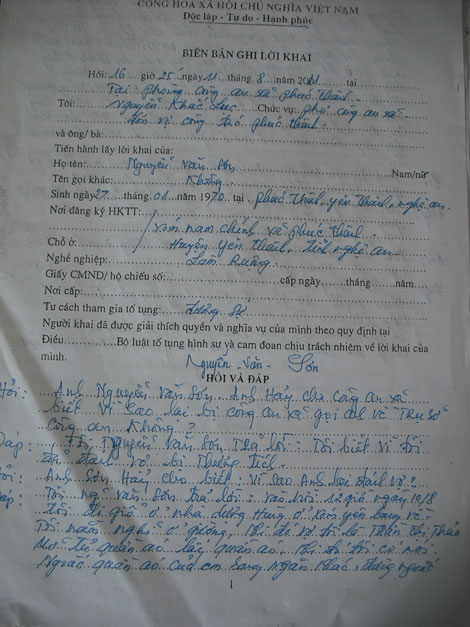 CỘNG HOÀ XÃ HỘI CHỦ NGHĨA VIỆT NAM
Độc lập - Tự do - Hạnh phúc
BIÊN BẢN GHI LỜI KHAI
Hồi: 16 giờ 25 ngày 11 tháng 8 năm 2011 tại
Tại phòng công an xã phúc thành
Tôi: Nguyễn Khắc Chức vụ: phó công an xã
và ông/ bà:
Tiến hành lấy lời khai của:
Họ tên: Nguyễn Văn Sơn Nam/nữ
Tên gọi khác: Không
Sinh ngày 27 tháng 01 năm 1970 tại phúc thành, yên thành, nghệ an
Nơi đăng ký HKTT: xóm nam chính xã phúc thành
Chỗ ở: Huyện yên thành, tỉnh nghệ an
Nghề nghiệp: Làm Ruộng
Giấy CMND/ hộ chiếu số: cấp ngày tháng năm
Nơi cấp:
Tư cách tham gia tố tụng: Đương sự
Người khai đã được giải thích quyền và nghĩa vụ của mình theo quy định tại
Điều Bộ luật tố tụng hình sự và cam đoan chịu trách nhiệm về lời khai của
mình. Nguyễn Văn Sơn
HỎI VÀ ĐÁP
Hỏi: Anh Nguyễn Văn Sơn, Anh Hãy cho công an xã
biết vì sao lại bị công an xã gọi anh về Trụ sở
công an không?
Đáp: Tôi Nguyễn Văn Sơn Trả lời: Tôi biết vì tôi
đánh vợ bị Thương Tích
Hỏi: Anh Sơn Hãy cho biết: Vì sao Anh lại đánh vợ?
Đáp: Tôi ng văn Sơn trả lời: vào hồi giờ ngày 10/8
Tôi đi giỗ ở nhà dượng Hùng ở xóm yên bang về
Tôi nằm nghỉ ở giường, khi đó vợ tôi là Thị Thảo
Mở tủ quần áo lấy quần áo, khi đó tôi có nói
quần áo của em sang ngăn khác, đừng
1